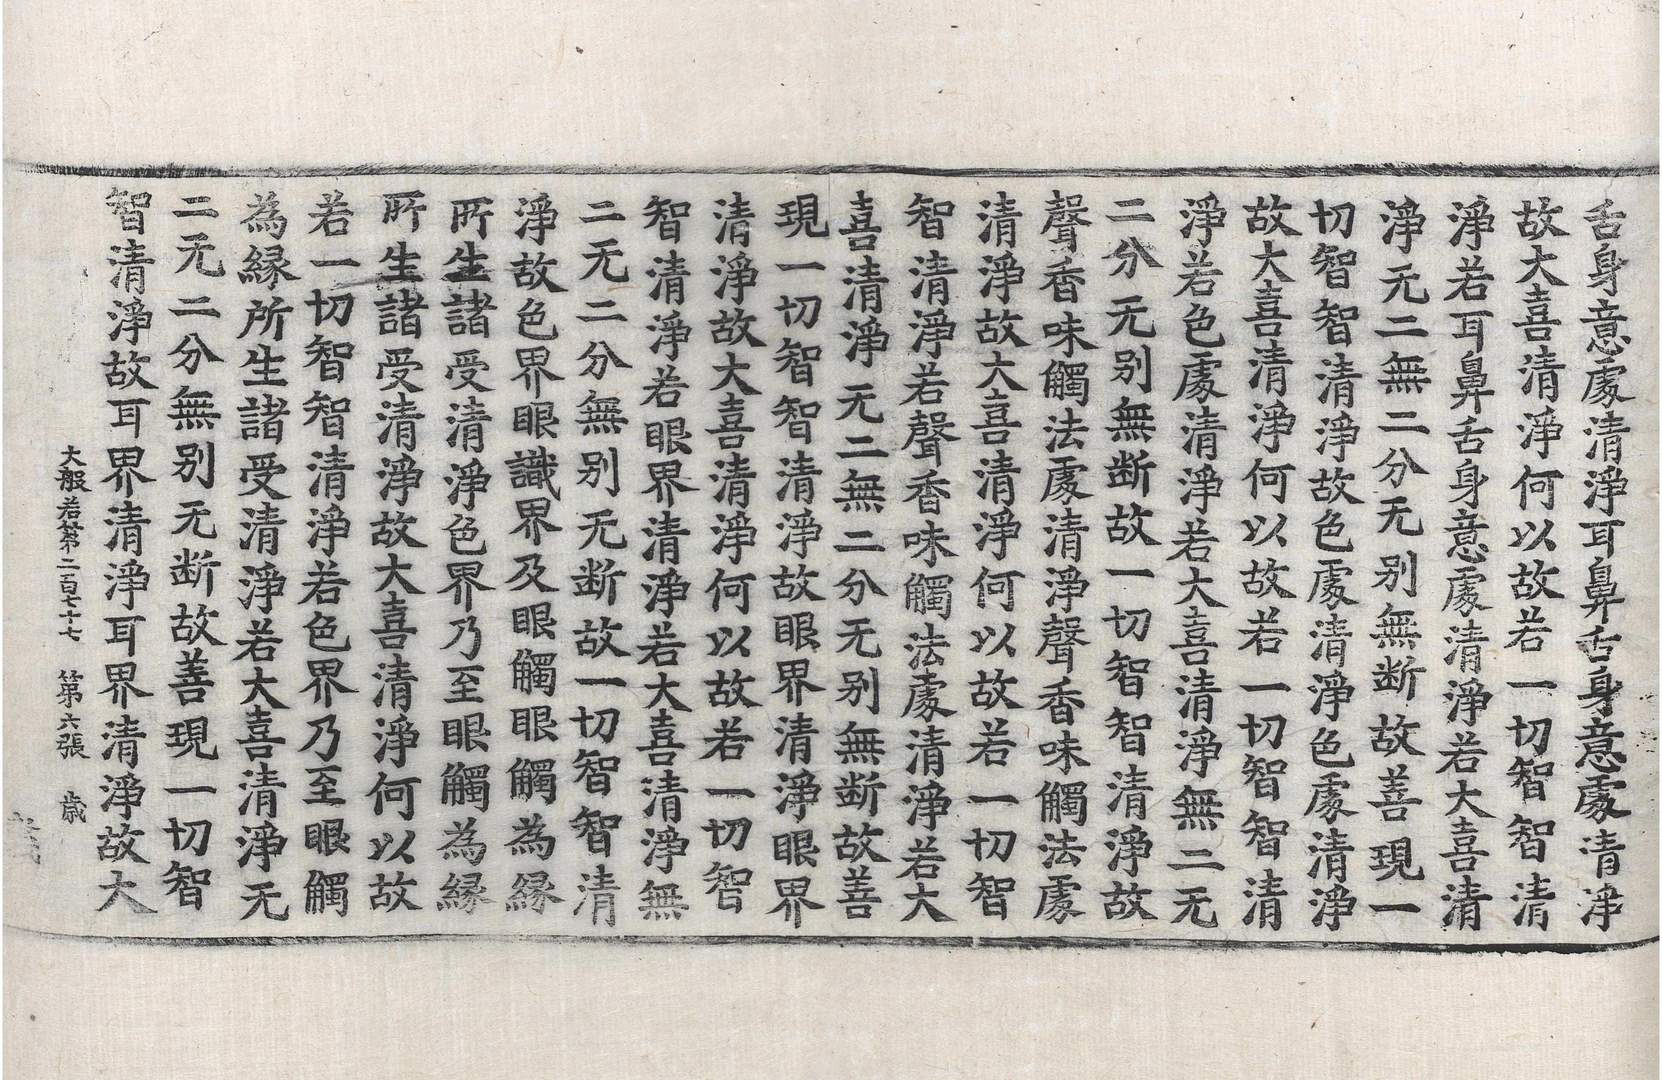 舌身意處清淨耳鼻舌身意處清淨
故大喜清淨何以故若一切智智清
淨若耳鼻舌身意處清淨若大喜清
淨无二無二分无别無断故善現一
切智智清淨故色處清淨色處清淨
故大喜清淨何以故若一切智智清
淨若色處清淨若大喜清淨無二无
二分无别無断故一切智智清淨故
聲香味觸法處清淨聲香味觸法處
清淨故大喜清淨何以故若一切智
智清淨若聲香味觸法處清淨若大
喜清淨无二無二分无别無断故善
現一切智智清淨故眼界清淨眼界
清淨故大喜清淨何以故若一切智
智清淨若眼界清淨若大喜清淨無
二无二分無别无断故一切智智清
淨故色界眼識界及眼觸眼觸為縁
所生諸受清淨色界乃至眼觸為縁
所生諸受清淨故大喜清淨何以故
若一切智智清淨若色界乃至眼觸
為縁所生諸受清淨若大喜清淨无
二无二分無别无断故善現一切智
智清淨故耳界清淨耳界清淨故大
大般若第二百七十七 第六張 歳